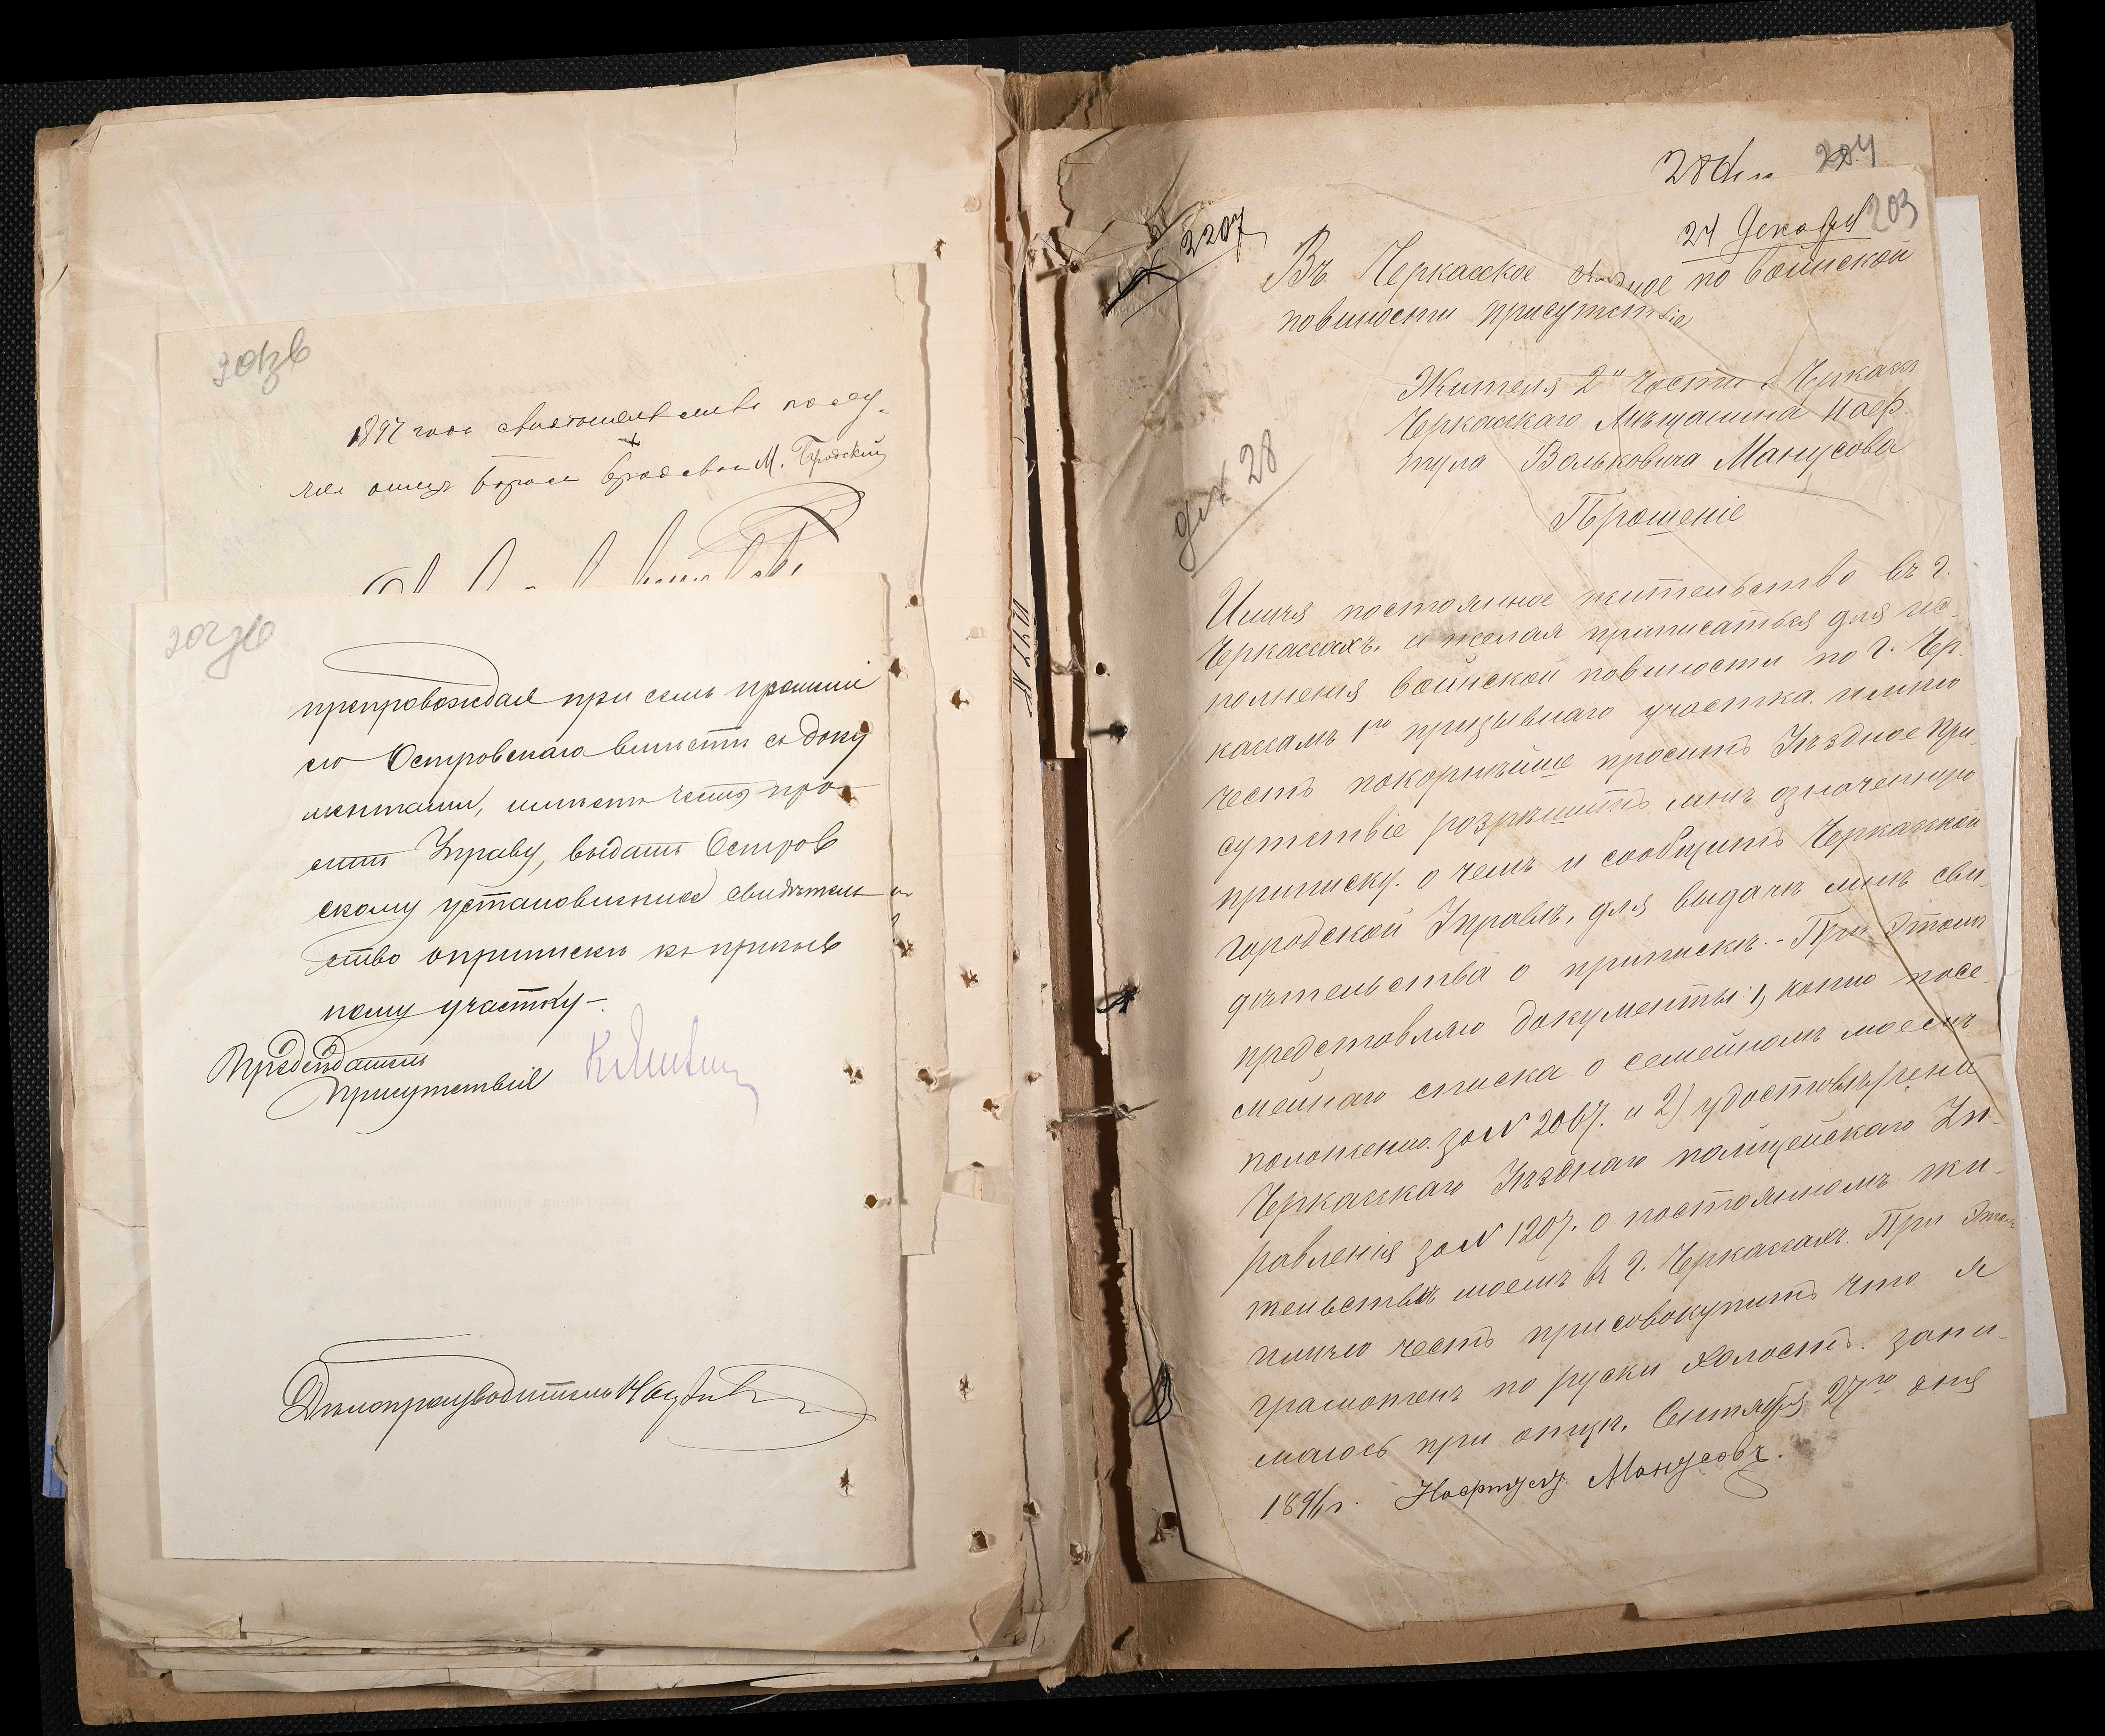 1897 года
отецъ М. Бродскій
препровождая при семъ прошеніе
его Островскаго вмѣстѣ съ доку
ментами, имѣетъ честь про
сить Управу, выдать Остров
скому установленное свидѣтель
ство о припискѣ къ призыв
ному участку.-
Предсѣдатель
Присутствія
Дѣлопроизводитель
204
203
24 Декабря
2207
Въ Черкасское Уѣздное по воинской
повиности присутствіе
28
Жителя 2й части г. Черкассъ
Черкасскаго Мѣщанина Наф-
тула Вольковича Манусова
Прошеніе
Имѣя постоянное жительство въ г.
Черкассахъ. и желая приписаться для ис-
полнения воинской повиности по г. Чер-
кассамъ 1го призывнаго участка. имѣю
честь покорнѣйше просить Уѣздное При-
сутствіе розрѣшить мнѣ означенную
приписку. о чемъ и сообщить Черкасской
городской Управѣ, для выдачѣ мнѣ сви-
дѣтельства о припискѣ. - При этомъ
представляю документы: 1, копию посе-
мейнаго списка о семейномъ моемъ
положению. за № 2067. и 2) удостовѣрения
Черкасскаго Уѣзднаго полицейскаго Уп-
равления за № 1207. о постоянномъ жи-
тельствѣ моемъ въ г. Черкассахъ. При этомъ
имѣю честь присовокупить что я
грамотенъ по руски холостъ. зани-
маюсь при отцѣ. Сентября 27го дня
1896 г. Нафтулъ Манусовъ.